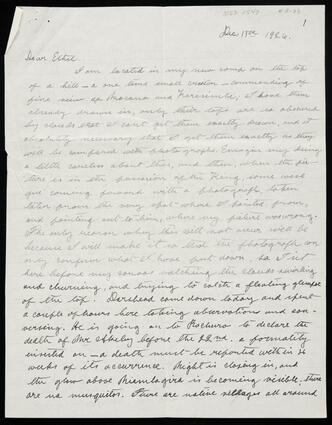 1
Dec 13th 1926.
Dear Ethel.
I am located in my new camp on the top
of a hill - a one time small crater - commanding a
fine view of and I have them
already drawn in, only their tops are so obscured
by clouds that I can't get them exactly drawn, and it
absolutely necessary that I get them exactly as they
will be compared with photographs. Imagine my being
a little careless about this, and then, when the pic-
ture is in the possession of the King, some weak
guy coming forward with a photograph, taken
taken from the very spot where I painted from,
and pointing out to him, where my picture was wrong.
The only reason why this will not occur will be
because I will make it so that the photograph can
only confirm what I have put down, so I sit
here before my canvas watching the clouds swirling
and churning, and trying to catch a fleeting glimpse
of the top. Derscheid came down today and spent
a couple of hours here taking observations and con-
versing. He is going on to to declare the
death of Mr Akeley before the 22nd. a formality
insisted on - a death must be reported within
weeks of its occurrence. Night is closing in, and
the glow above is becoming visible, there
are no mosquitos. There are native villages all around